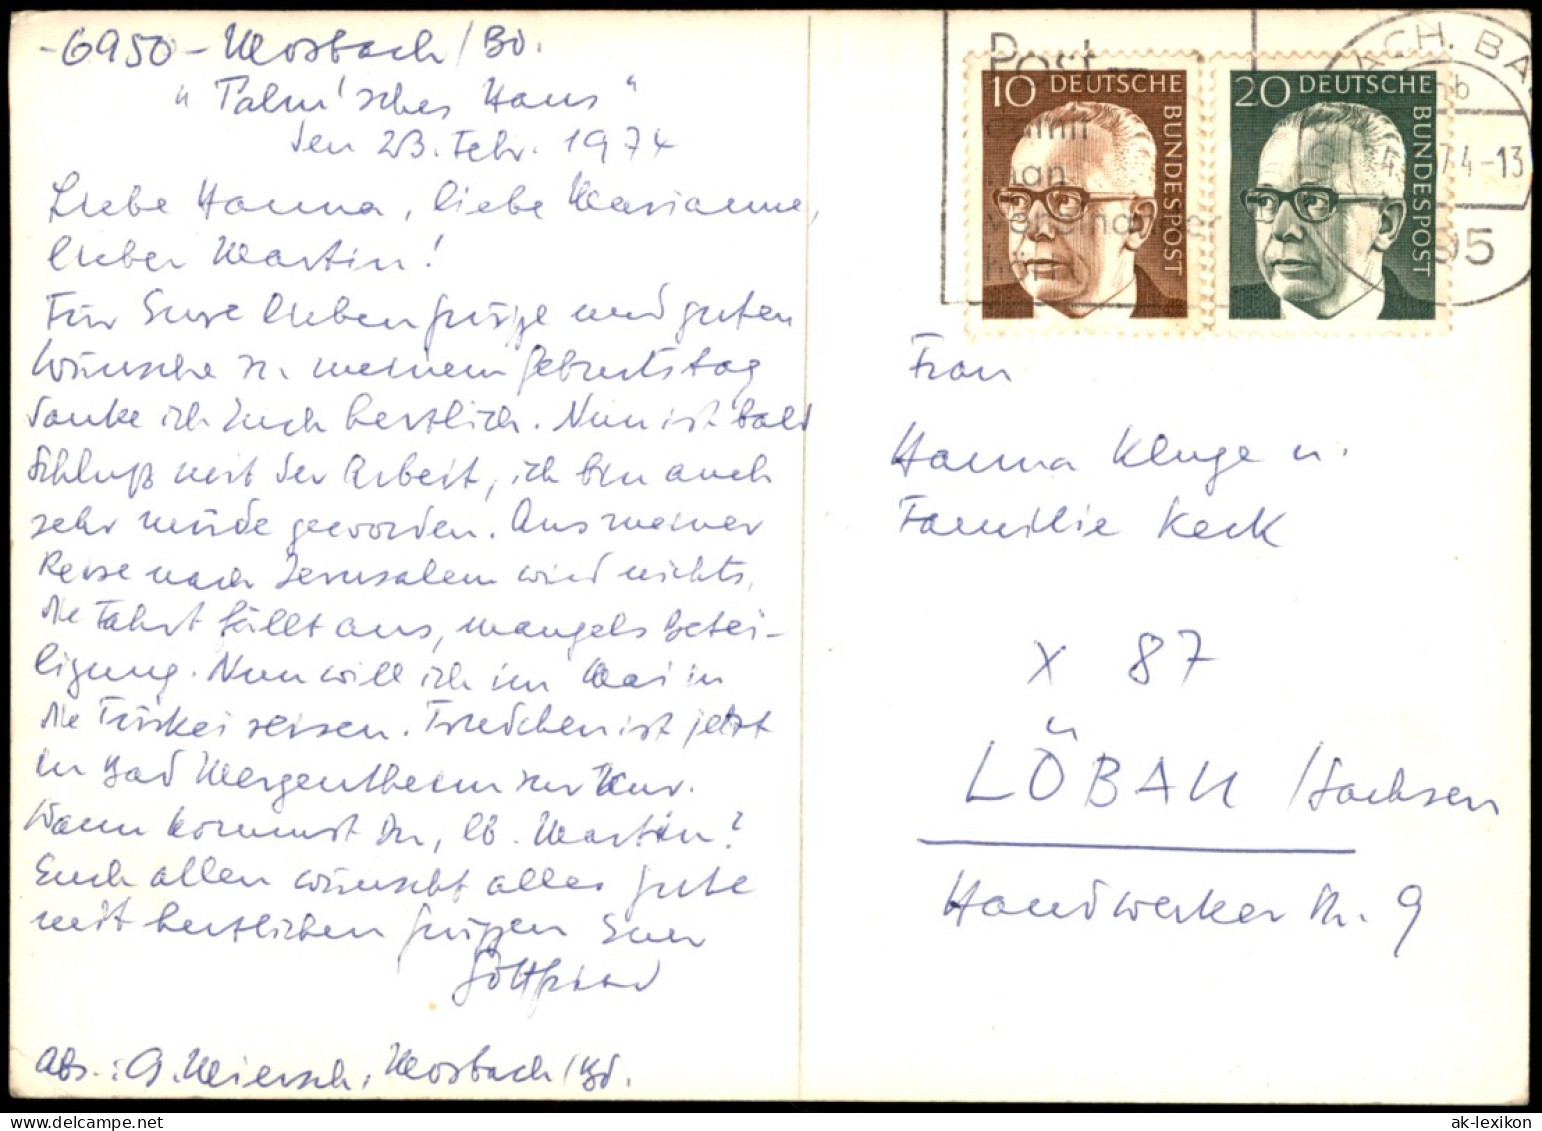 -6950- Mosbach/Bd.
"Palm'sches Haus"
den 23. Febr. 1974
Liebe Hanna, liebe Marianne,
lieber Martin!
Für Eure lieben Grüße und guten
Wünsche z. meinem Geburtstag
danke ich Euch herzlich. Nun ist bald
Schluß mit der Arbeit, ich bin auch
sehr müde geworden. Aus meiner
Reise nach Jerusalem wird nichts,
die Fahrt fällt aus, mangels Betei-
ligung. Nun will ich im Mai in
die Türkei reisen. Friedchen ist jetzt
in Bad Mergentheim zur Kur.
Wann kommst Du, lb. Martin?
Euch allen wünscht alles Gute
mit herzlichen Grüßen Euer
Gottfried
Abs.: G. Miersch, Mosbach/Bd.
Post
damit
man
voneinander
hört
ACH. BA
mb
74-13
695
10 DEUTSCHE
BUNDESPOST
20 DEUTSCHE
BUNDESPOST
Frau
Hanna Kluge u.
Familie Keck
X 87
LÖBAU /Sachsen
Handwerker Str. 9
ak-lexikon